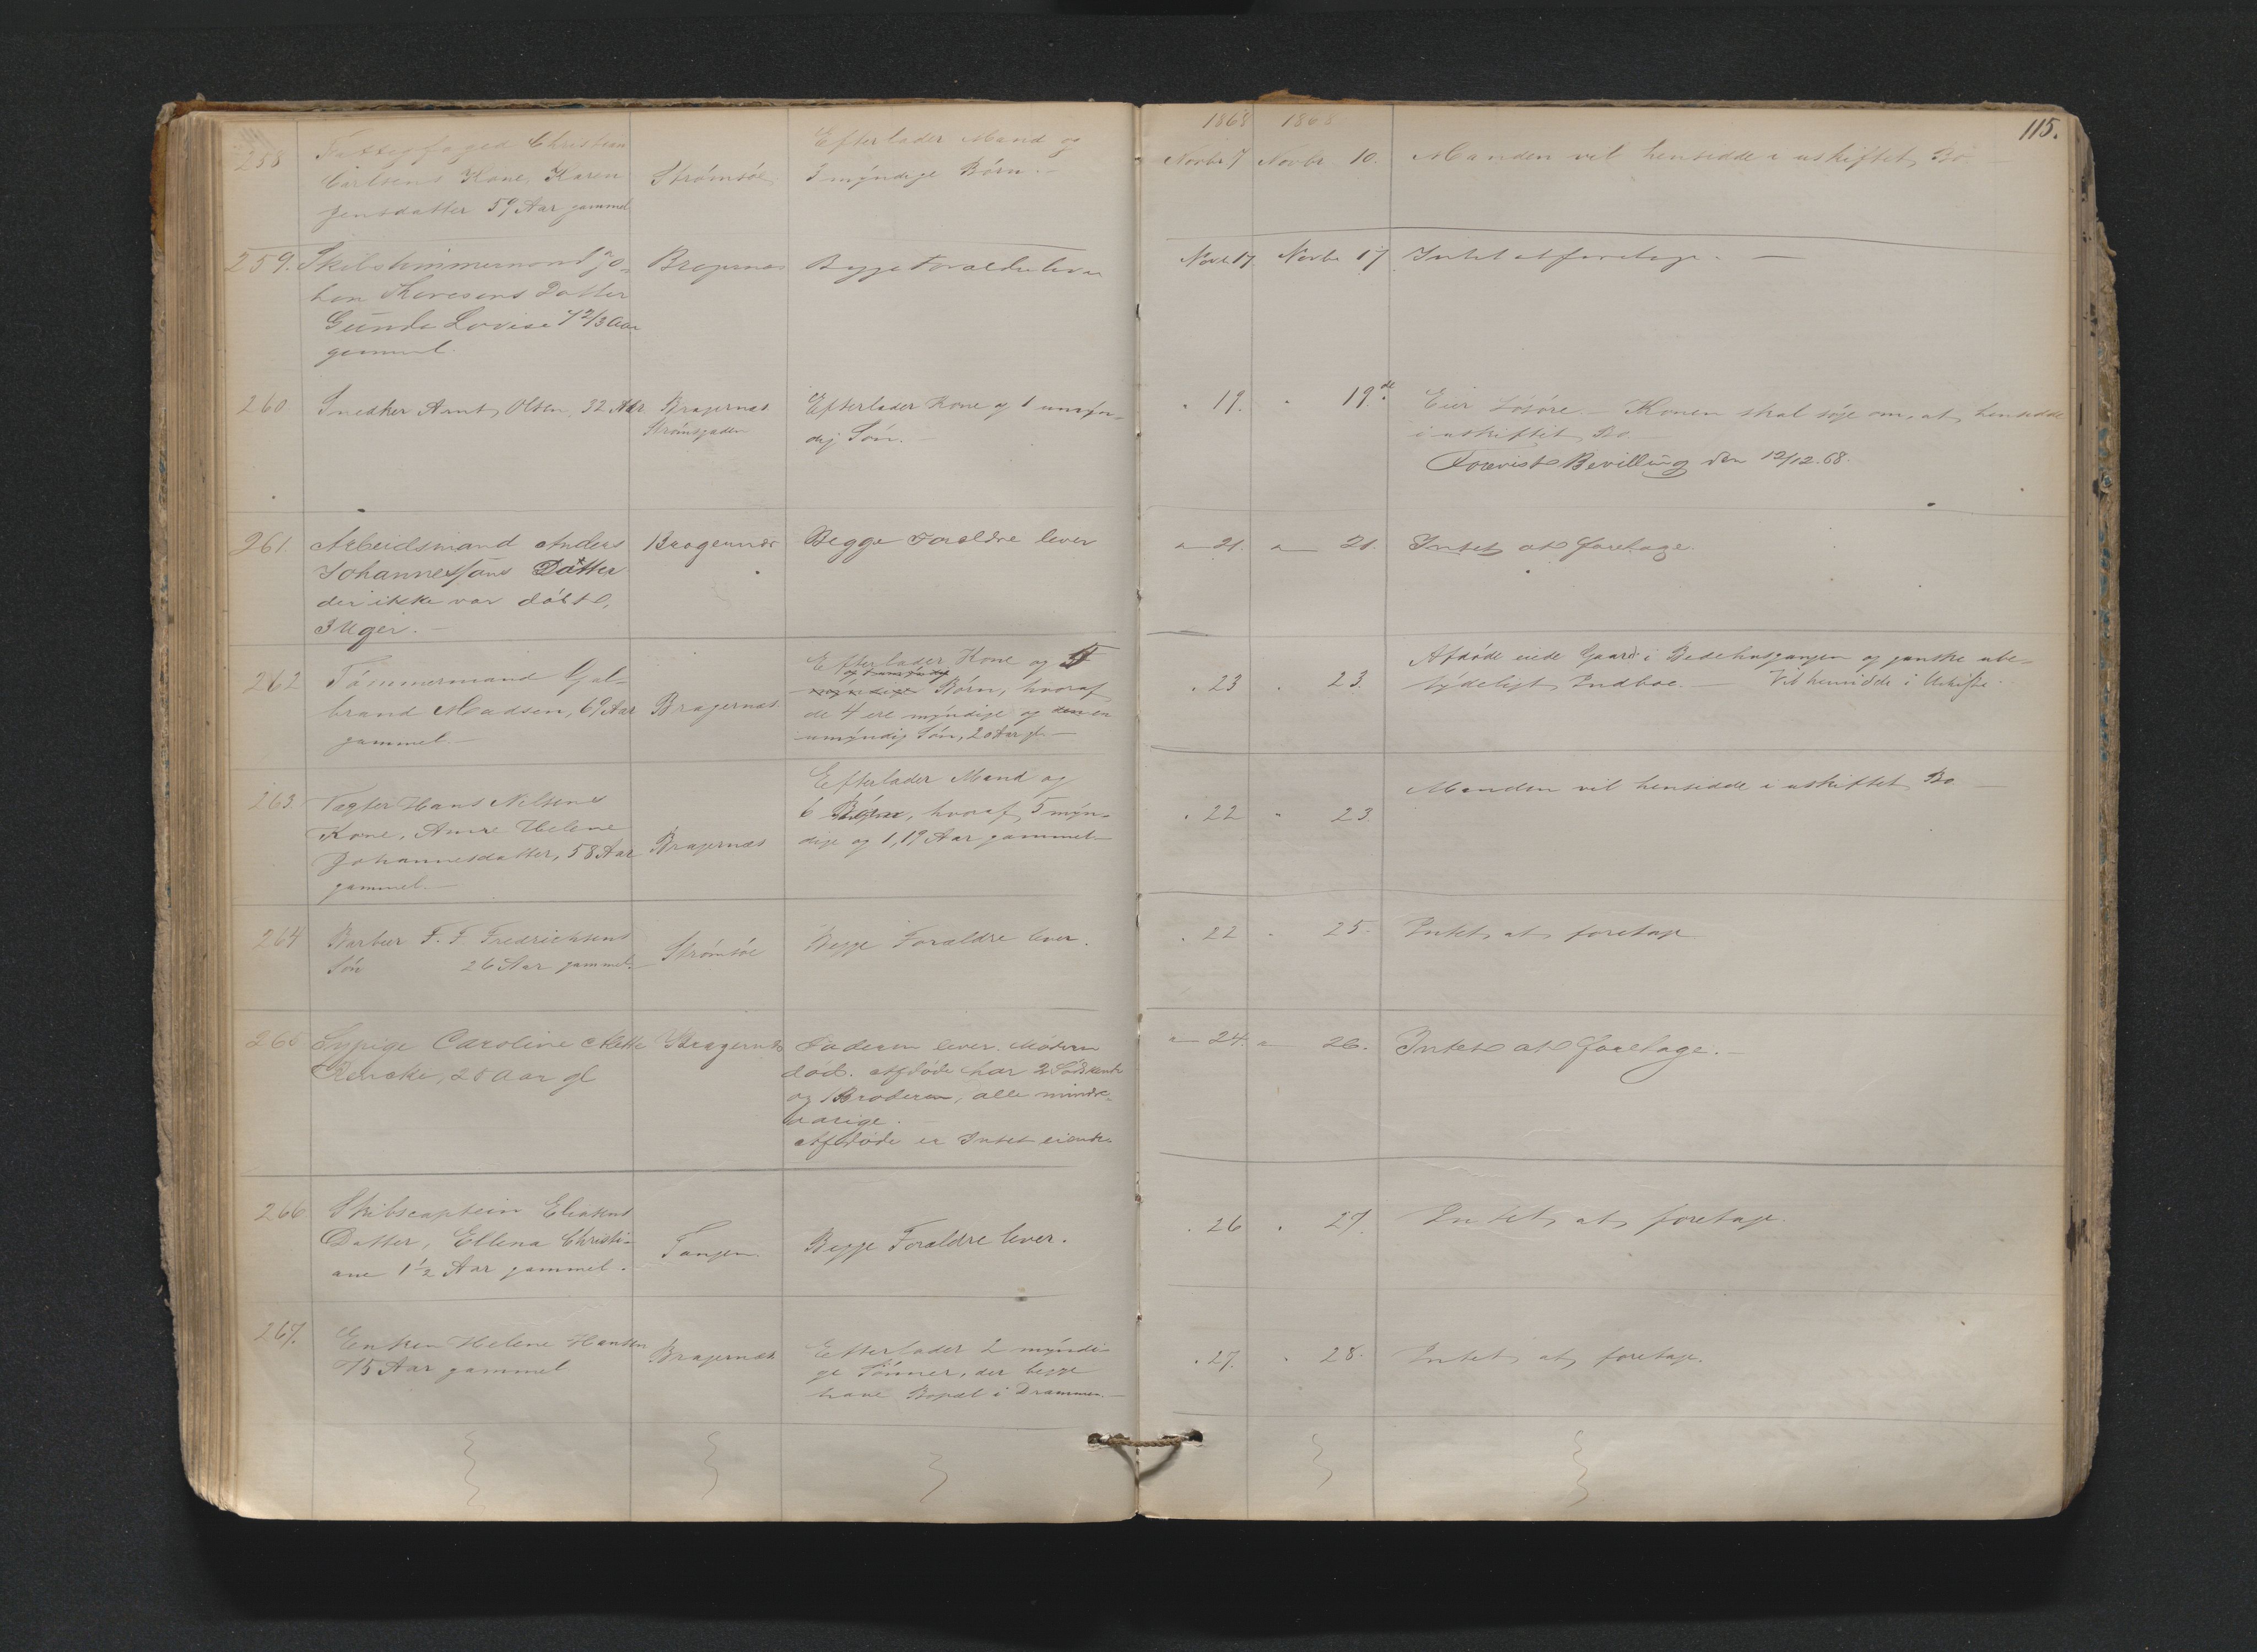 115.
1868 1868
258 Fattigfoged Christian
Carlsens Kone, Karen
Jensdatter 59 Aar gammel.
Strømsøe
Efterlader Mand og
3 myndige Børn. -
Novbr 7 Novbr 10. Manden vil hensidde i uskiftet Bo.
259. Skibstimmermand Jo-
han Datter
Gunda Lovise 7 2/3 Aar
gammel.
Bragernæs
Begge Forældre lever
Novbr 17. Novbr 17 Intet at foretage. -
260 Snedker Arnt Olsen, 32 Aar
Bragernæs
Strømsgaden
Efterlader Kone og 1 umyn-
dig Søn. -
" 19. " 19de. Eier Løsøre. - Konen skal søge om, at hensidde
i uskiftet Bo. -
Forevist Bevilling den 12/12.68.
261 Arbeidsmand Anders
Johannessøns Datter
der ikke var døbt,
3 Uger. -
Bragernæs
Begge Forældre lever
" 21. " 21. Intet at foretage.
262 Tømmermand Gul-
brand Madsen, 69 Aar
gammel. -
Bragernæs
Efterlader Kone og 5
Børn, hvoraf
de 4 ere myndige og en
umyndig Søn, 20 Aar gl. -
" 23 " 23. Afdøde eiede Gaard i Bedehusgangen og ganske ube-
tydeligt Indboe. - Vil hensidde i Uskifte.
263. Vægter Hans Nilsens
Kone, Anne Helene
Johannesdatter, 58 Aar
gammel. -
Bragernæs
Efterlader Mand og
6 Børn, hvoraf 5 myn-
dige og 1, 19 Aar gammel. -
" 22 " 23. Manden vil hensidde i uskiftet Bo. -
264 Barber F. F. Fredrichsens
Søn 26 Aar gammel. -
Strømsøe
Begge Forældre lever.
" 22 " 25. Intet at foretage
265 Sypige Caroline Mette
25 Aar gl
Bragernæs
Faderen lever. Moderen
død. Afdøde har 2 Sødskende
og 1 Broder, alle mindre-
aarige. -
Afdøde er Intet eiende
" 24. " 26. Intet at foretage. -
266 Skibscaptein Eliasens
Datter, Ellena Christi-
ane 1 1/2 Aar gammel.
Tangen.
Begge Forældre lever.
" 26 " 27. Intet at foretage.
267. Enken Helene Hansen
75 Aar gammel
Bragernæs
Efterlader 2 myndi-
ge Sønner, der begge
have Bopæl i Drammen. -
" 27. " 28. Intet at foretage.